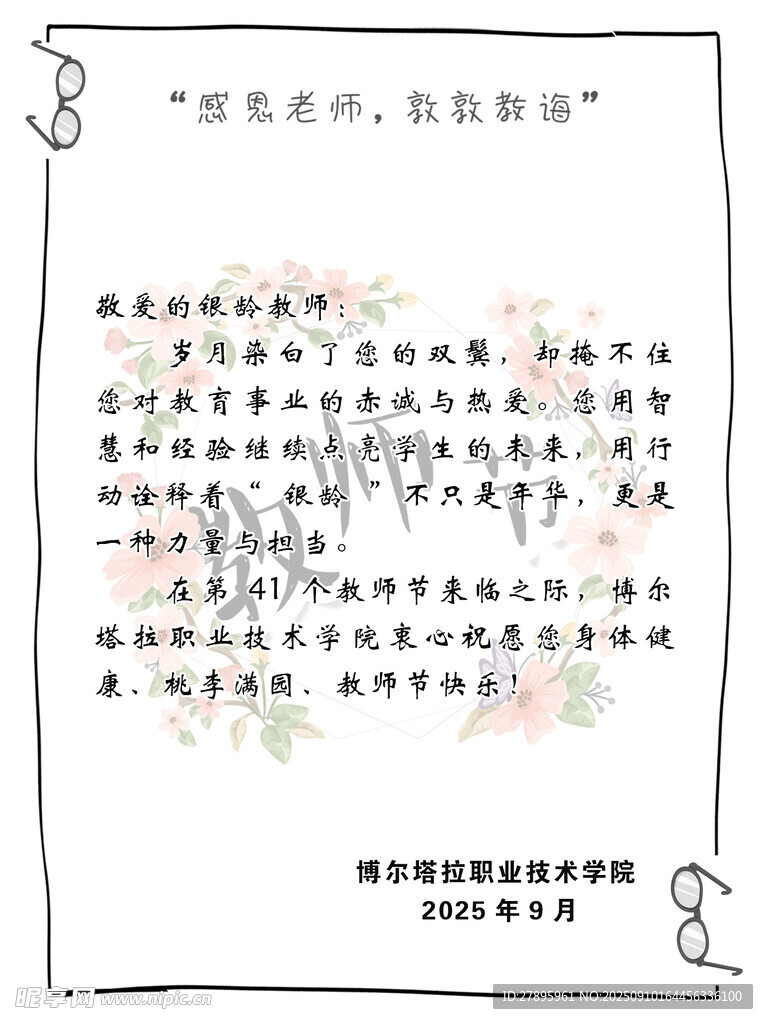 “感恩老师，敦敦教诲”
敬爱的银龄教师：
岁月染白了您的双鬓，却掩不住
您对教育事业的赤诚与热爱。您用智
慧和经验继续点亮学生的未来，用行
动诠释着“ 银龄 ”不只是年华，更是
一种力量与担当。
教师节
在第 41 个教师节来临之际，博尔
塔拉职业技术学院衷心祝愿您身体健
康、桃李满园、教师节快乐！
博尔塔拉职业技术学院
2025 年 9 月
昵享网 www.nipic.cn
ID:27895961 NO:20250910164456336100